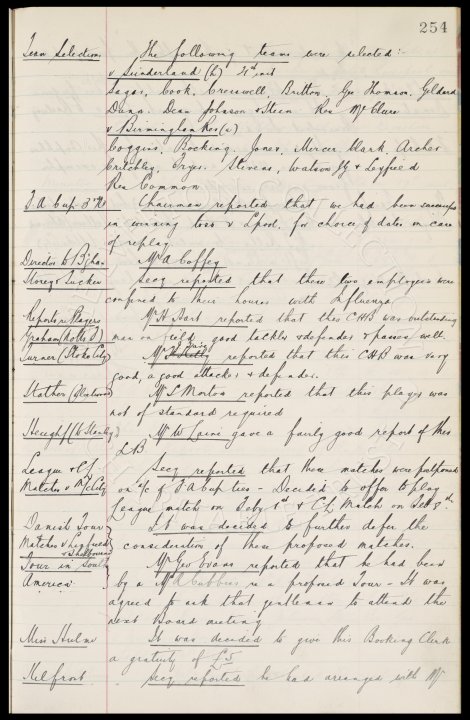 254
Team Selections The following teams were selected:-
v Sunderland (h) 21st inst
Sagar, Cook, Cresswell, Britton, Geo Thomson, Geldard
Dunn. Dean Johnson & Stein Res McClure
v Birmingham Res (a)
Coggins, Bocking, Jones, Mercer, Clark, Archer
Critchley, Fryer. Stevens, Watson JG & Leyfield
Res Common
F A Cup 3rd Rd Chairman reported that we had been successful
in winning toss v Lpool. for choice of dates in case
of replay
Director to B'ham Mr A Coffey
Storey & Tucker Secy reported that these two employees were
confined to their houses with Influenza
Reports re Players Mr H Hart reported that this CHB was outstanding
Graham (Notts F) man on field good tackler & defender & passes well.
Turner (Stoke City) Mr reported that this CHB was very
good, a good attacker & defender.
Stother (Fleetwood) Mr S Morton reported that this player was
not of standard required
(W Stanley) Mr W gave a fairly good report of this
LB
League & CL Secy reported that these matches were postponed
Matches v McCity on a/c of F A Cup ties - Decided to offer to play
League match on Feby 1st & CL Match on Feb 8th.
Danish Tour It was decided to further defer the
Matches v
& Shelbourne consideration of these proposed matches.
Tour in South Mr Geo Evans reported that he had been
America by a Mr re a proposed Tour - It was
agreed to ask that gentleman to attend the
next Board meeting
Miss Hulme It was decided to give this Booking Clerk
a gratuity of £5
Secy reported he had arranged with Mr